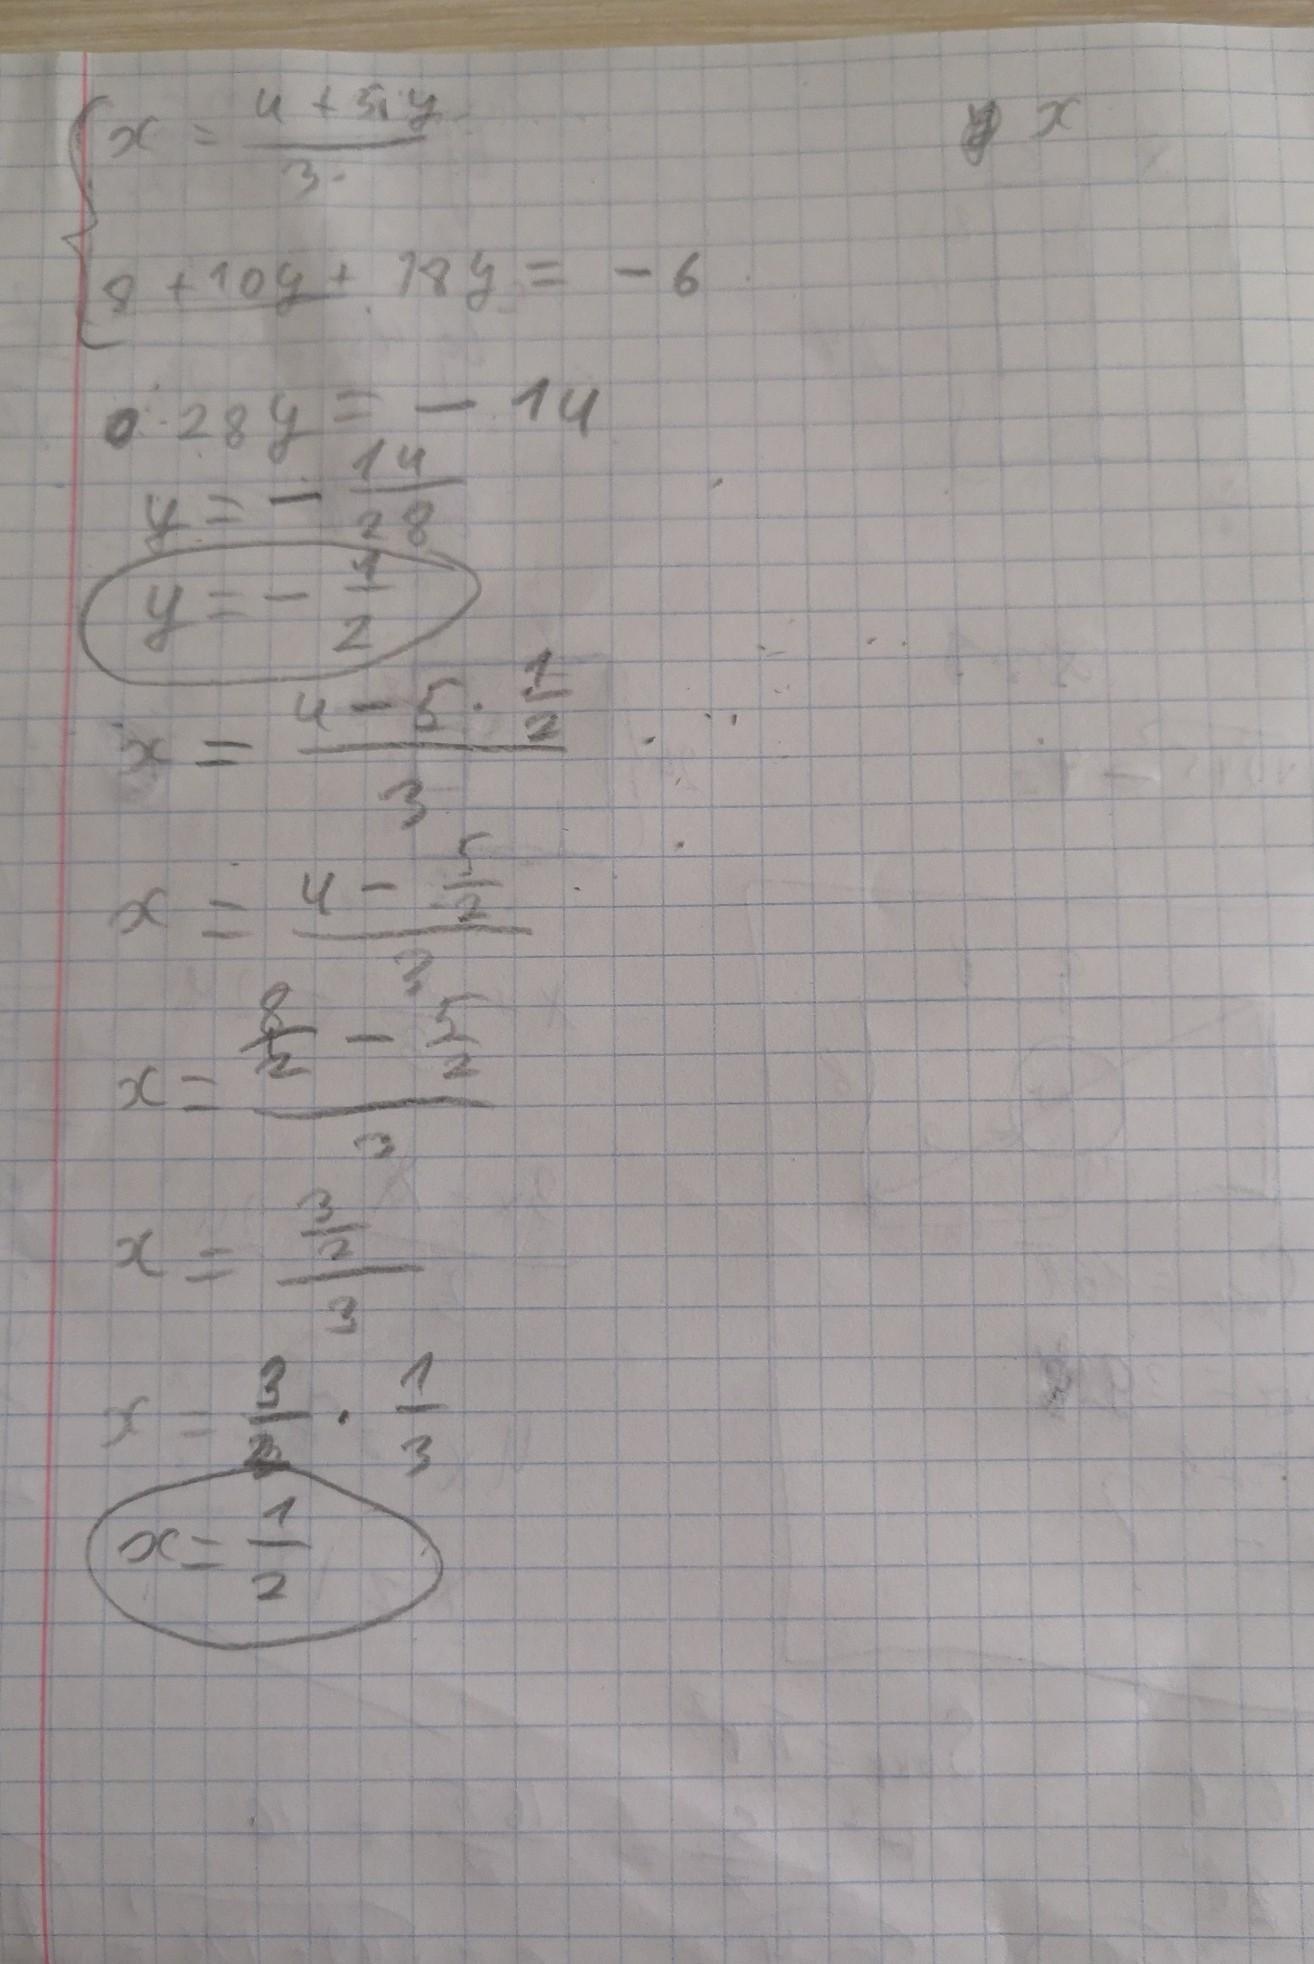 x = (4 + 5y)/3
x
8 + 10y + 18y = -6
28y = -14
y = -14/28
y = -1/2
x = (4 - 5 · 1/2)/3
x = (4 - 5/2)/3
x = (8/2 - 5/2)/3
x = (3/2)/3
x = 3/2 · 1/3
x = 1/2